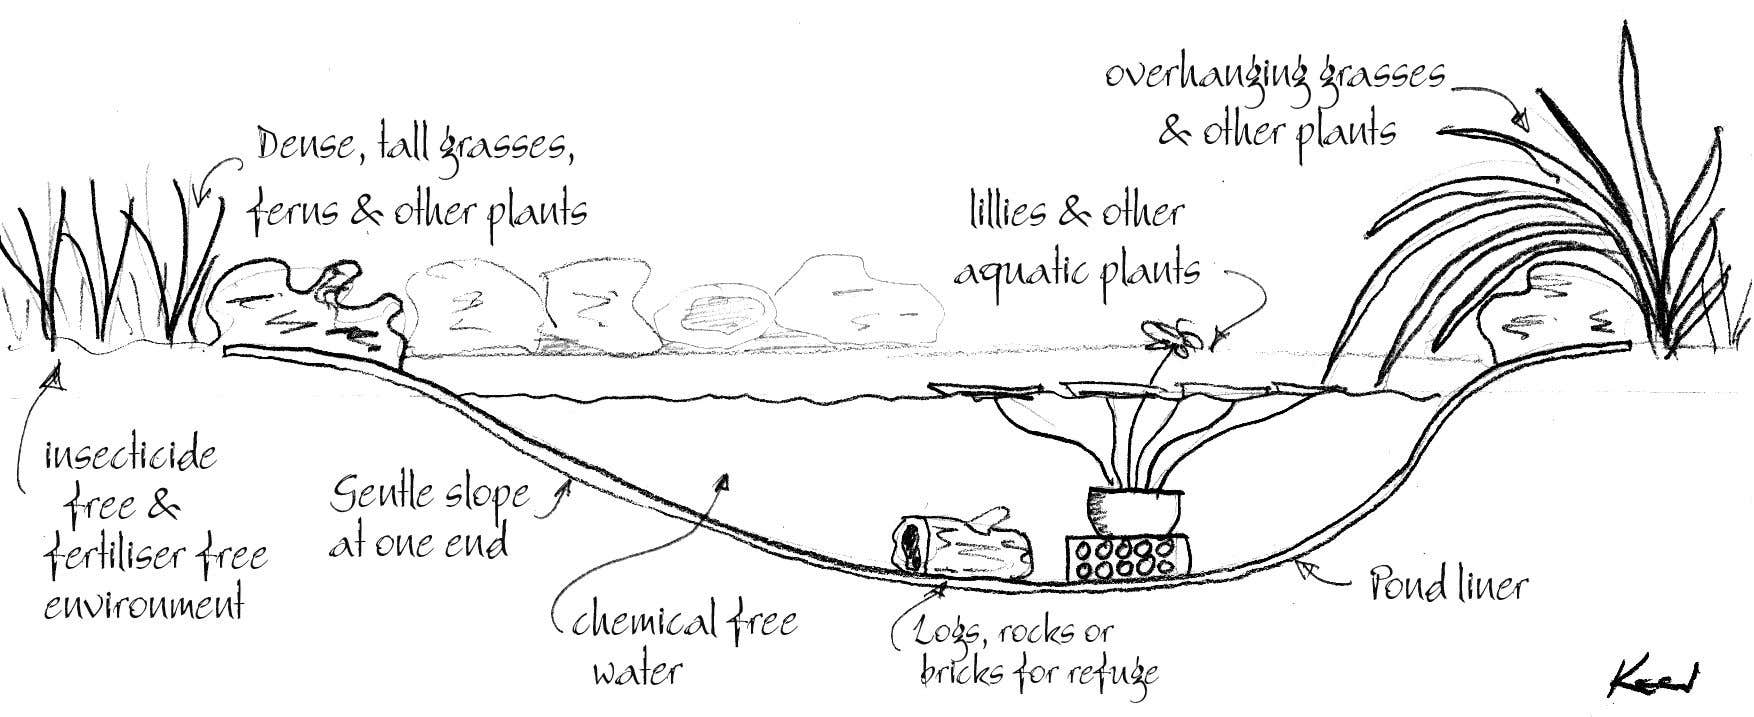 overhanging grasses
& other plants
Dense, tall grasses,
ferns & other plants
lillies & other
aquatic plants
insecticide
free &
fertiliser free
environment
Gentle slope
at one end
chemical free
water
Logs, rocks or
bricks for refuge
Pond liner